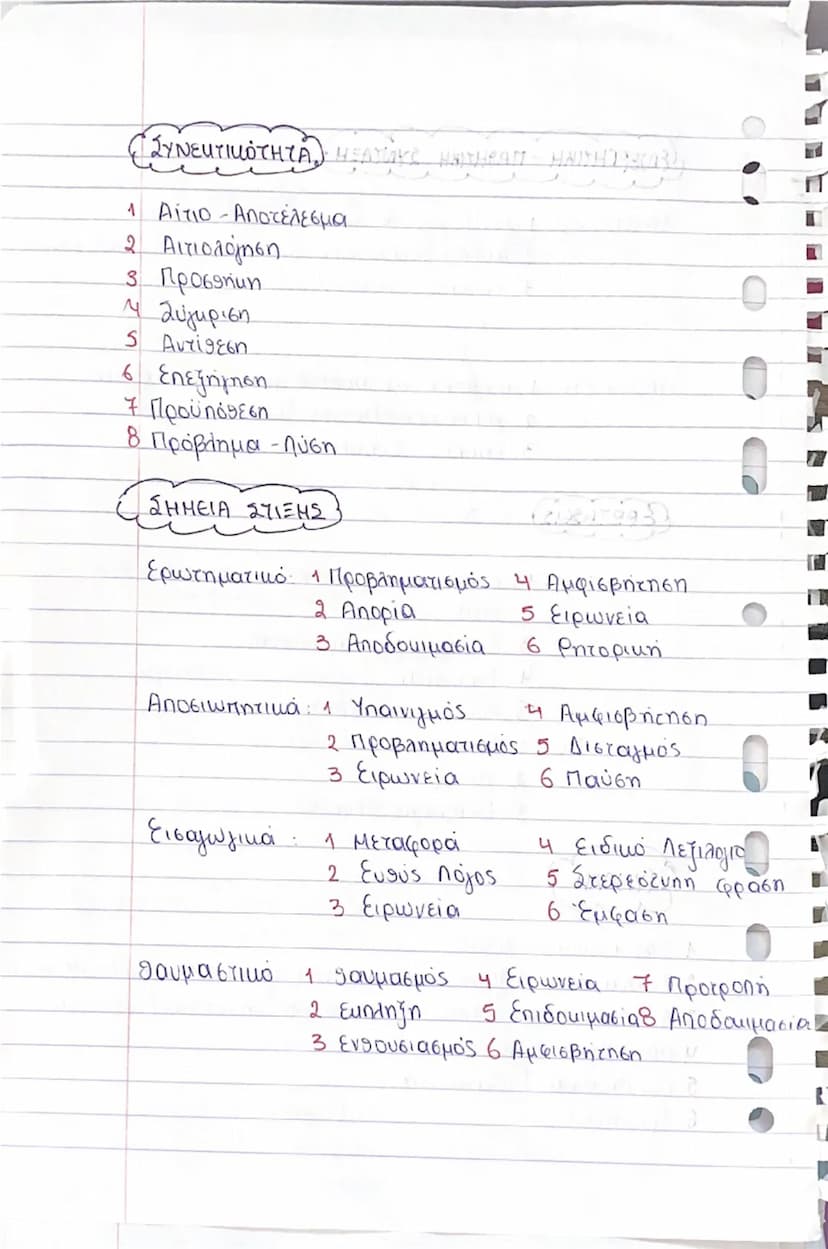 ΣΥΝΕΚΤΙΚΟΤΗΤΑ
1 Αίτιο - Αποτέλεσμα
2 Αιτιολόγηση
3 Προσθήκη
4 Σύγκριση
5 Αντίθεση
6 Επεξήγηση
7 Προϋπόθεση
8 Πρόβλημα - Λύση
ΣΗΜΕΙΑ ΣΤΙΞΗΣ
Ερωτηματικό: 1 Προβληματισμός 4 Αμφισβήτηση
2 Απορία 5 Ειρωνεία
3 Αποδοκιμασία 6 Ρητορική
Αποσιωπητικά: 1 Υπαινιγμός 4 Αμφισβήτηση
2 Προβληματισμός 5 Δισταγμός
3 Ειρωνεία 6 Παύση
Εισαγωγικά: 1 Μεταφορά 4 Ειδικό Λεξιλόγιο
2 Ευθύς Λόγος 5 Στερεότυπη φράση
3 Ειρωνεία 6 Έμφαση
Θαυμαστικό 1 Θαυμασμός 4 Ειρωνεία 7 Προτροπή
2 Εκπληξη 5 Επιδοκιμασία 8 Αποδοκιμασία
3 Ενθουσιασμός 6 Αμφισβήτηση